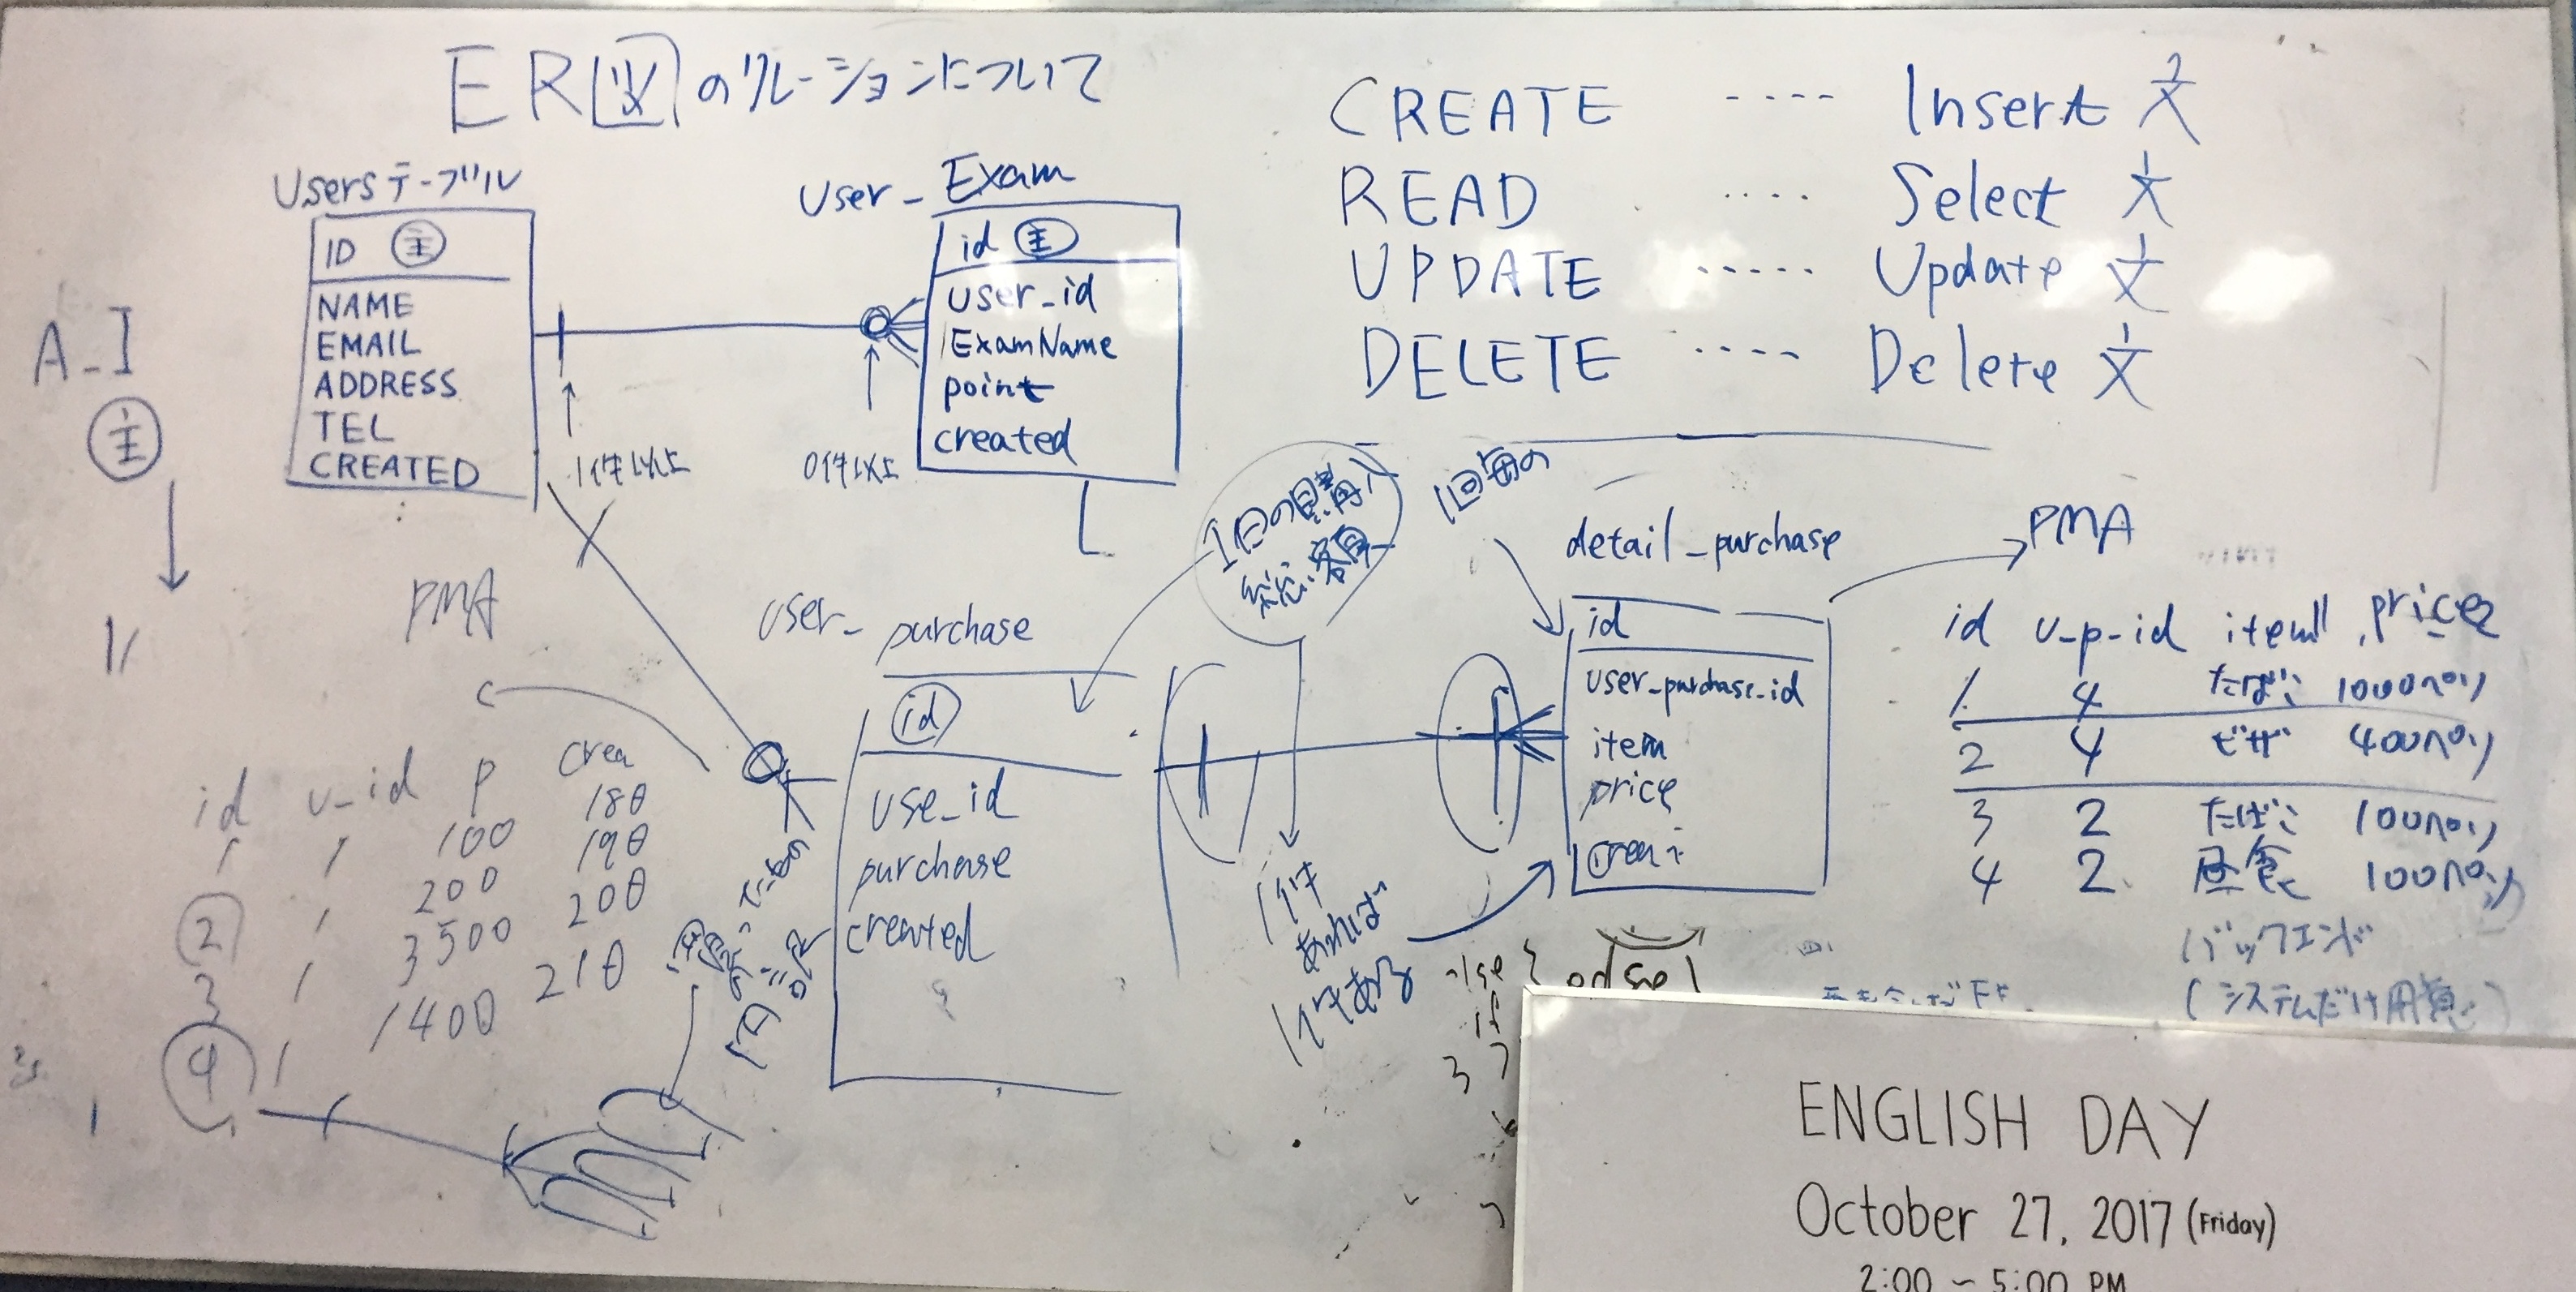 ER図のリレーションについて
CREATE ---- Insert 文
READ .... Select 文
UPDATE ----- Update 文
DELETE ---- Delete 文
Usersテーブル
ID 主
NAME
EMAIL
ADDRESS
TEL
CREATED
A_I
主
1件以上
0件以上
user_Exam
id 主
user_id
ExamName
point
created
PMA
id u_id p crea
1 1 100 18日
2 1 200 19日
3 1 3500 20日
4 1 1400 21日
user_purchase
id
use_id
purchase
created
1回の買
1回毎の
1件
あれば
1件ある
detail_purchase
id
user_purchase_id
item
price
PMA
id u_p_id item price
1 4 たばこ 1000ペリ
2 4 ピザ 400ペリ
3 2 たばこ 100ペリ
4 2 昼食 100ペリ
バックエンド
ENGLISH DAY
October 27, 2017 (Friday)
2:00 – 5:00 PM